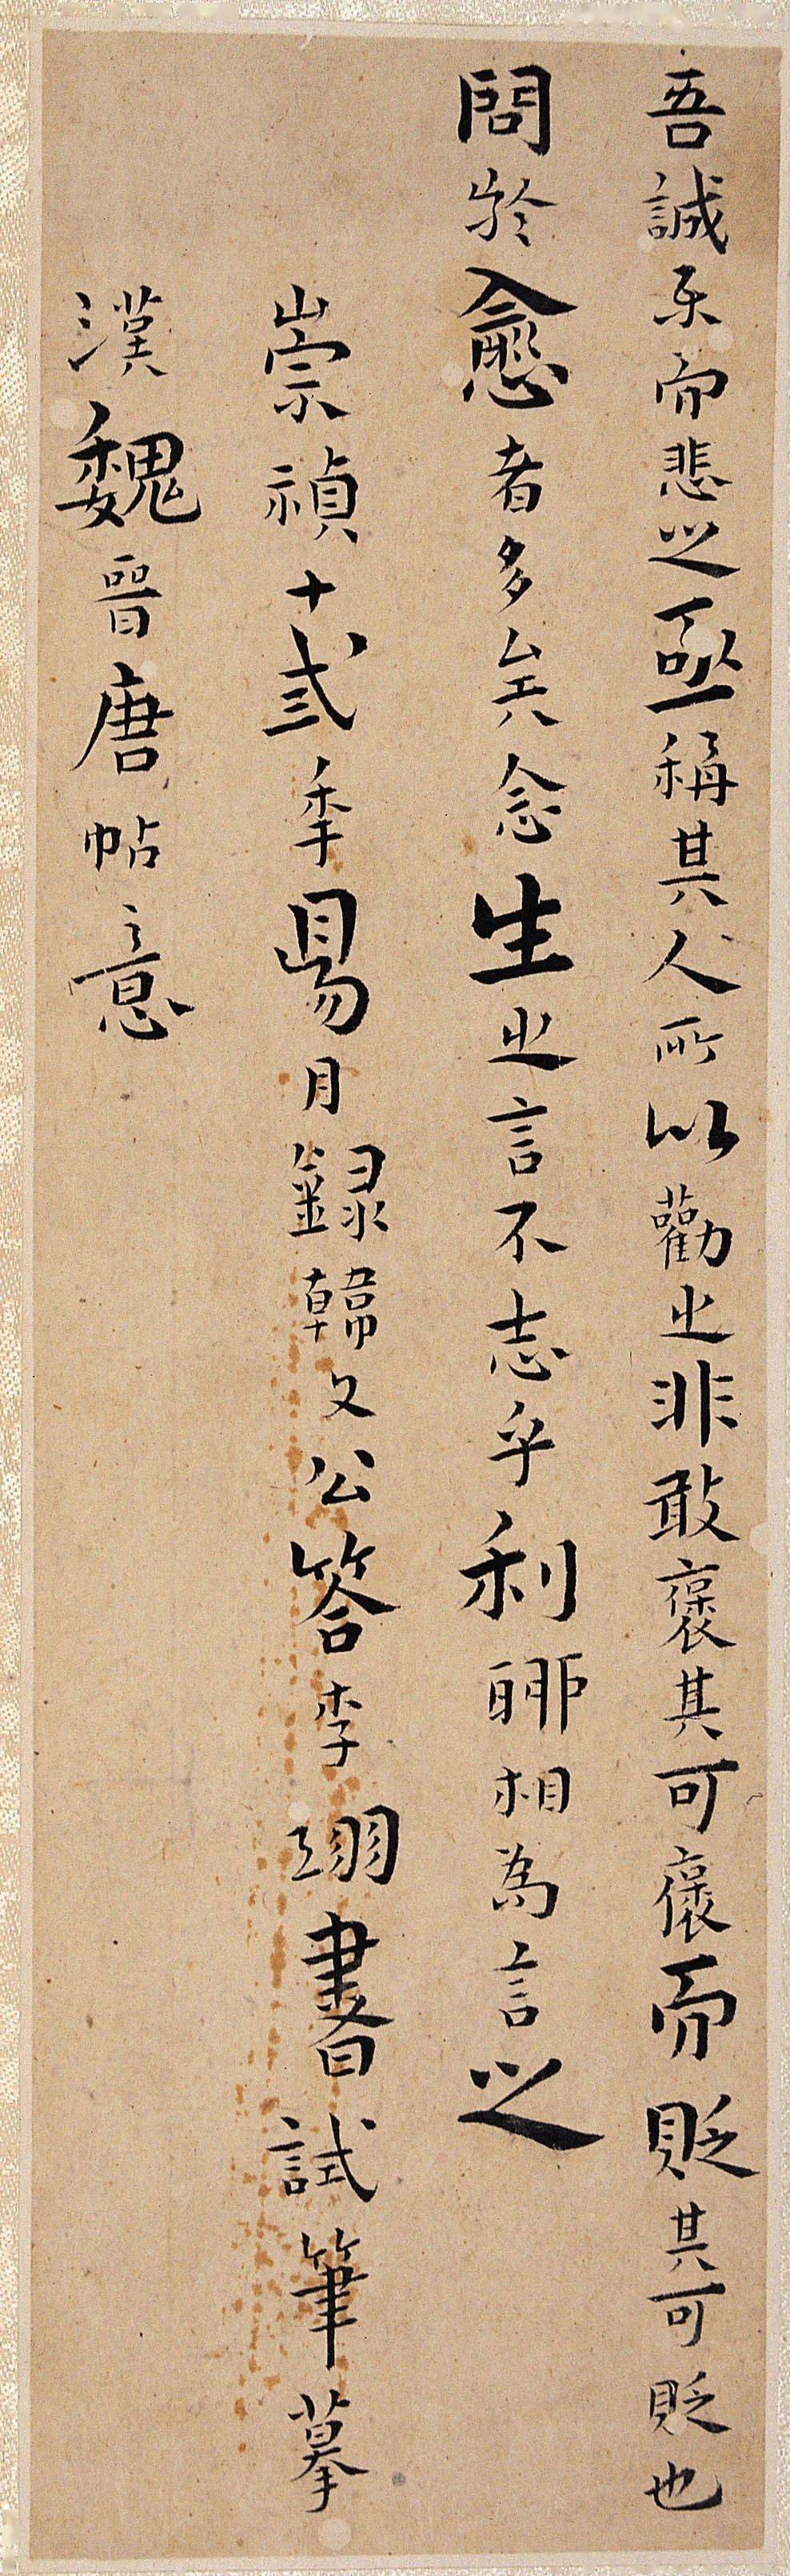 吾誠乐而悲之亟稱其人所以勸之非敢褒其可褒而貶其可貶也
問於愈者多矣念生之言不志乎利聊相為言之
崇禎十弍季昜月錄韓文公答李翊書試筆摹
漢魏晉唐帖意